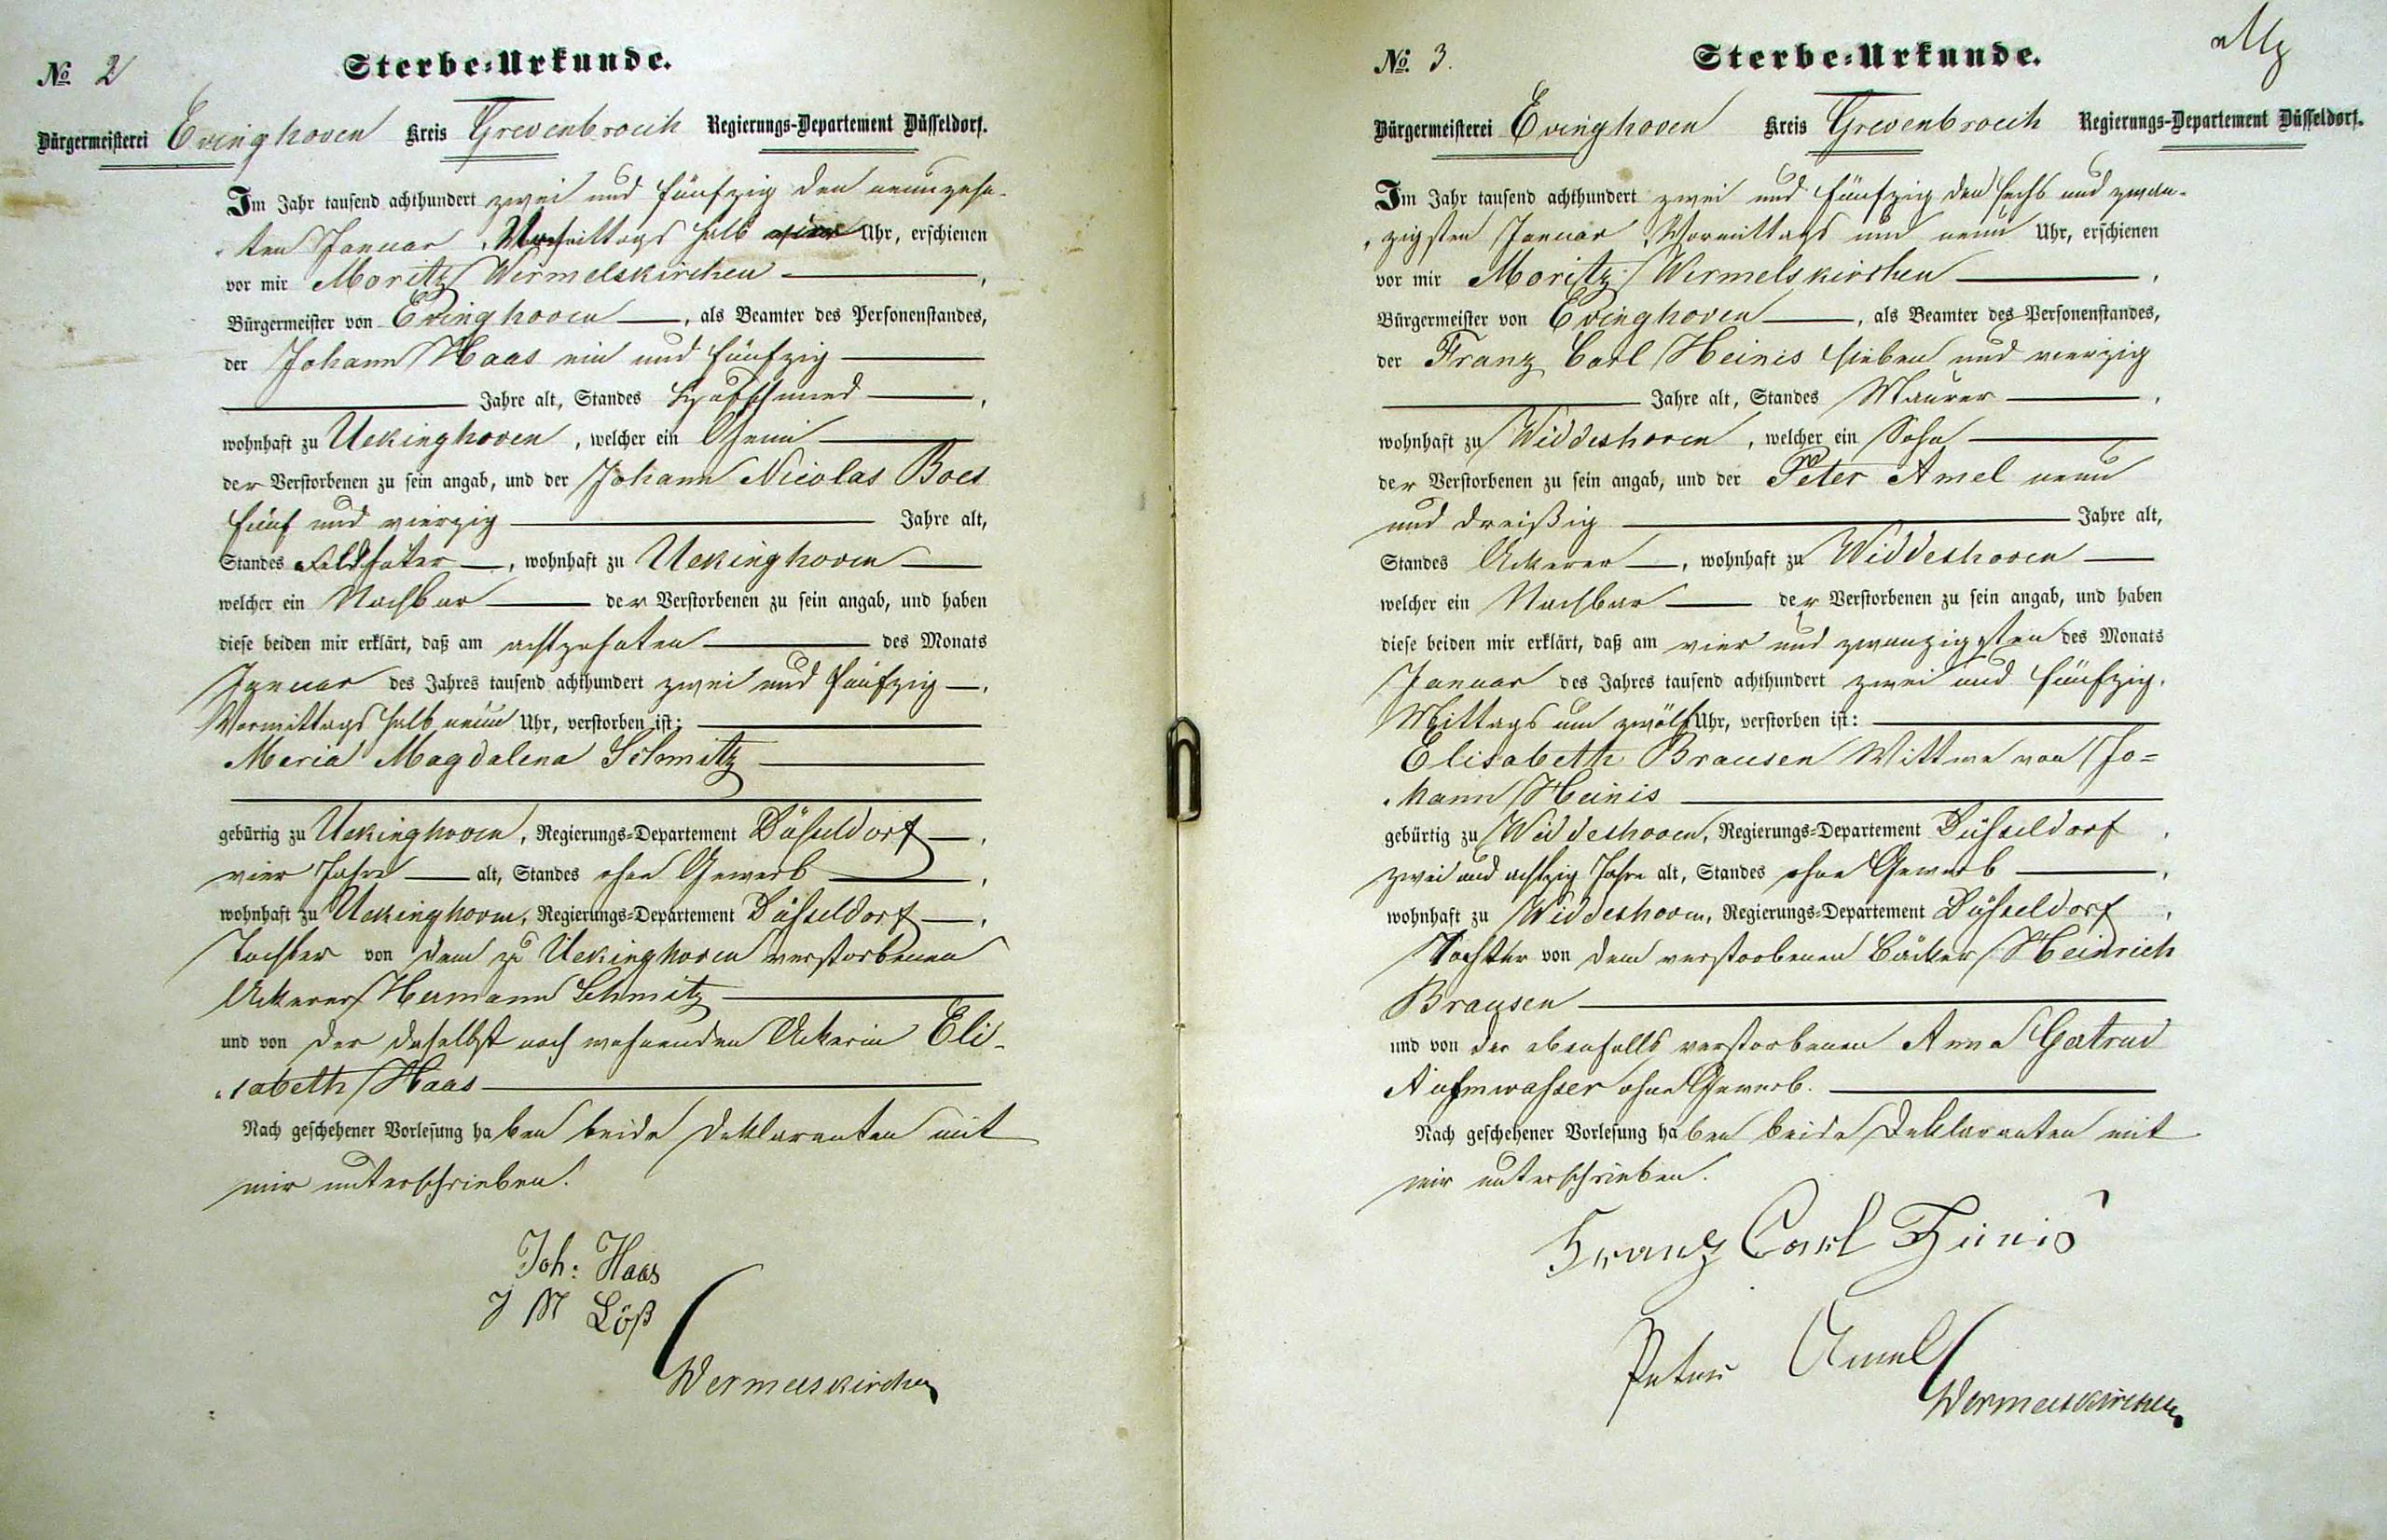 № 2
Sterbe-Urkunde.
Bürgermeisterei Evinghoven Kreis Grevenbroich Regierungs-Departement Düsseldorf.
Im Jahr tausend achthundert zwei und fünfzig den neunzehn-
ten Januar, Vormittags halb Uhr, erschienen
vor mir Moritz Wermelskirchen,
Bürgermeister von Evinghoven, als Beamter des Personenstandes,
der Johann Haas ein und fünfzig
Jahre alt, Standes Hufschmied,
wohnhaft zu Uekinghoven, welcher ein Oheim
der Verstorbenen zu sein angab, und der Johann Nicolas Boes
fünf und vierzig Jahre alt,
Standes Feldhüter, wohnhaft zu Uekinghoven
welcher ein Nachbar der Verstorbenen zu sein angab, und haben
diese beiden mir erklärt, daß am achtzehnten des Monats
Januar des Jahres tausend achthundert zwei und fünfzig,
Vormittags halb neun Uhr, verstorben ist:
Maria Magdalena Schmitz
gebürtig zu Uekinghoven, Regierungs-Departement Düsseldorf,
vier Jahre alt, Standes ohne Gewerb,
wohnhaft zu Uekinghoven, Regierungs-Departement Düsseldorf,
Tochter von dem zu Uekinghoven verstorbenen
Ackerer Hermann Schmitz
und von der daselbst noch wohnenden Ackerin Eli-
sabeth Haas
Nach geschehener Vorlesung haben beide Deklaranten mit
mir unterschrieben.
Joh: Haas
J N Löß
Wermelskirchen
№ 3.
Sterbe-Urkunde.
Bürgermeisterei Evinghoven Kreis Grevenbroich Regierungs-Departement Düsseldorf.
Im Jahr tausend achthundert zwei und fünfzig den sechs und zwan-
zigsten Januar, Vormittags um neun Uhr, erschienen
vor mir Moritz Wermelskirchen,
Bürgermeister von Evinghoven, als Beamter des Personenstandes,
der Franz Carl Heinis sieben und vierzig
Jahre alt, Standes Maurer,
wohnhaft zu Widdeshoven, welcher ein Sohn
der Verstorbenen zu sein angab, und der Peter Amel neun
und dreißig Jahre alt,
Standes Ackerer, wohnhaft zu Widdeshoven
welcher ein Nachbar der Verstorbenen zu sein angab, und haben
diese beiden mir erklärt, daß am vier und zwanzigsten des Monats
Januar des Jahres tausend achthundert zwei und fünfzig.
Mittags um zwölf Uhr, verstorben ist:
Elisabeth Brausen Wittwe von Jo=
hann Heinis
gebürtig zu Widdeshoven, Regierungs-Departement Düsseldorf,
zwei und achtzig Jahre alt, Standes ohne Gewerb,
wohnhaft zu Widdeshoven, Regierungs-Departement Düsseldorf,
Tochter von dem verstorbenen Bäcker Heinrich
Brausen
und von der ebenfalls verstorbenen Anna Gertrud
ohne Gewerb.
Nach geschehener Vorlesung haben beide Deklaranten mit
mir unterschrieben.
Franz Carl Heinis
Peter Amel
Wermelskirchen